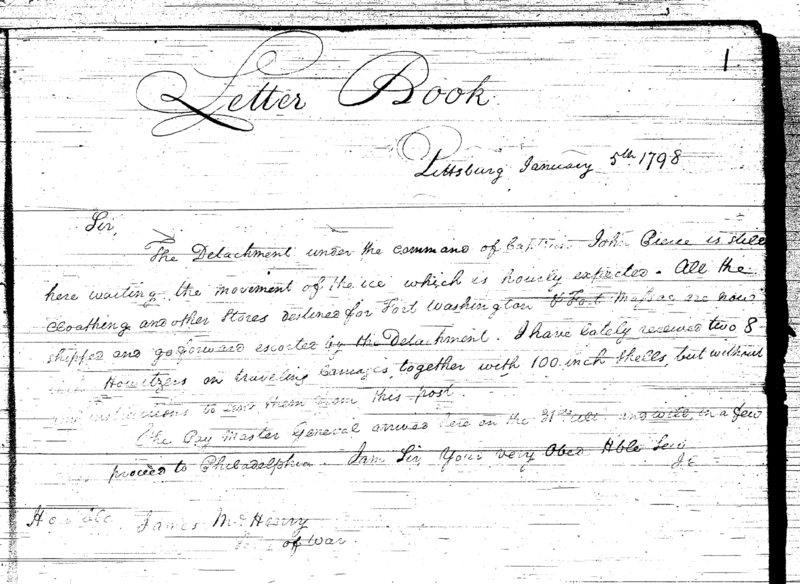 1
Letter Book
Pittsburg January 5th 1798
Sir,
The Detachment under the command of Captain John Pierce is still
here waiting the movement of the ice which is hourly expected. All the
cloathing and other Stores destined for Fort Washington & Fort Massac are now
shipped and go forward escorted by the Detachment. I have lately received two 8
inch Howitzers on traveling Carriages together with 100 inch Shells, but without
any instructions to them from this post.
The Pay Master General arrived here on the 31st ult and will, in a few
proceed to Philadelphia. I am Sir Your very Obed Hble Serv
Honble. James McHenry
of War